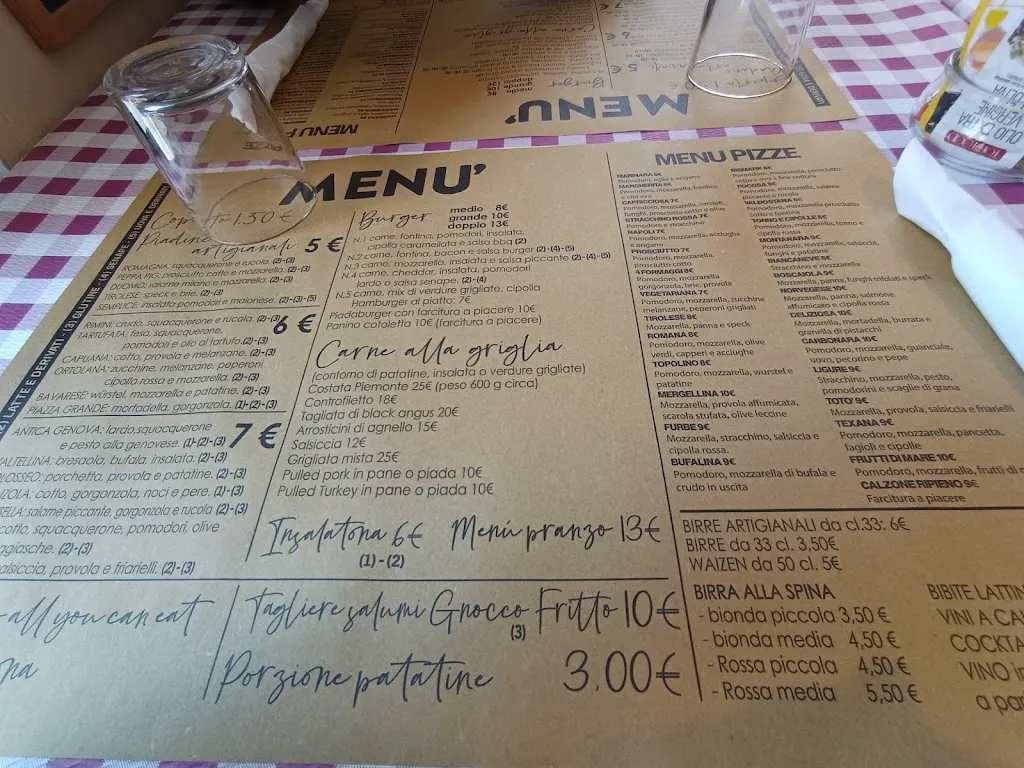 MENU'
MENU PIZZE
(2) LATTE E DERIVATI - (3) GLUTINE - (4) SENAPE - (5) UOVA E DERIVATI
Coperto 1,50 €
Piadine
artigianali 5 €
ROMAGNA: squacquerone e rucola. (2)-(3)
PEPPA PIG: prosciutto cotto e mozzarella. (2)-(3)
DUOMO: salame milano e mozzarella. (2)-(3)
TIROLESE: speck e brie. (2)-(3)
SEMPLICE: insalata pomodori e maionese. (2)-(3)-(5)
6 €
RIMINI: crudo, squacquerone e rucola. (2)-(3)
TARTUFATA: fesa, squacquerone,
pomodori e olio al tartufo.(2)-(3)
CAPUANA: cotto, provola e melanzane. (2)-(3)
ORTOLANA: zucchine, melanzane, peperoni
cipolla rossa e mozzarella. (2)-(3)
BAVARESE: würstel, mozzarella e patatine. (2)-(3)
PIAZZA GRANDE: mortadella, gorgonzola. (1)-(2)-(3)
7 €
ANTICA GENOVA: lardo,squacquerone
e pesto alla genovese. (1)-(2)-(3)
ALTELLINA: bresaola, bufala, insalata. (2)-(3)
OLOSSEO: porchetta, provola e patatine. (2)-(3)
cotto, gorgonzola, noci e pere. (1)-(3)
salame piccante, gorgonzola e rucola (2)-(3)
cotto, squacquerone, pomodori, olive
ggiasche. (2)-(3)
alsiccia, provola e friarielli. (2)-(3)
Burger
medio 8€
grande 10€
doppio 13€
N.1 carne, fontina, pomodori, insalata,
cipolla caramellata e salsa bbq (2)
N.2 carne, fontina, bacon e salsa burger (2)-(4)-(5)
N.3 carne, mozzarella, insalata e salsa piccante (2)-(4)-(5)
N.4 carne, cheddar, insalata, pomodori
lardo e salsa senape. (2)-(4)
N.5 carne, mix di verdure grigliate, cipolla
Hamburger al piatto: 7€
Piadaburger con farcitura a piacere 10€
Panino cotoletta 10€ (farcitura a piacere)
Carne alla griglia
(contorno di patatine, insalata o verdure grigliate)
Costata Piemonte 25€ (peso 600 g circa)
Controfiletto 18€
Tagliata di black angus 20€
Arrosticini di agnello 15€
Salsiccia 12€
Grigliata mista 25€
Pulled pork in pane o piada 10€
Pulled Turkey in pane o piada 10€
Insalatona 6€
(1) - (2)
Menú pranzo 13€
MARINARA 5€
Pomodoro, aglio e origano
MARGHERITA 5€
Pomodoro, mozzarella, basilico
e olio evo
CAPRICCIOSA 7€
Pomodoro, mozzarella, carciofi,
funghi, prosciutto cotto e olive
STRACCHINO ROSSA 7€
Pomodoro e stracchino
NAPOLI 7€
Pomodoro, mozzarella, acciughe
e origano
PROSCIUTTO 7€
Pomodoro, mozzarella,
prosciutto cotto
4 FORMAGGI 8€
Pomodoro, mozzarella,
gorgonzola, brie, provola
VEGETARIANA 7€
Pomodoro, mozzarella, zucchine
melanzane, peperoni grigliati
TIROLESE 8€
Mozzarella, panna e speck
ROMANA 8€
Pomodoro, mozzarella, olive
verdi, capperi e acciughe
TOPOLINO 8€
Pomodoro, mozzarella, wurstel e
patatine
MERGELLINA 10€
Mozzarella, provola affumicata,
scarola stufata, olive leccine
FURBE 9€
Mozzarella, stracchino, salsiccia e
cipolla rossa.
BUFALINA 9€
Pomodoro, mozzarella di bufala e
crudo in uscita
BISMARK 8€
Pomodoro, mozzarella, prosciutto
cotto e uovo a fine cottura
FOCOSA 9€
Pomodoro, mozzarella, salame
piccante e rucola
VALDOSTANA 9€
Pomodoro, mozzarella prosciutto
cotto e fontina
TONNO E CIPOLLE 8€
Pomodoro, mozzarella, tonno e
cipolla rossa
MONTANARA 9€
Pomodoro, mozzarella, salsiccia,
funghi e grana
BIANCANEVE 9€
Stracchino e mozzarella
BOSCAIOLA 9€
Mozzarella, panna, funghi trifolati e speck
NORVEGESE 10€
Mozzarella, panna, salmone
affumicato e cipolla rossa
DELIZIOSA 10€
Mozzarella, mortadella, burrata e
granella di pistacchi
CARBONARA 10€
Mozzarella, guanciale,
uovo, pecorino e pepe
LIGURE 9€
Stracchino, mozzarella, pesto,
pomodorini e scaglie di grana
TOTO' 9€
Mozzarella, provola, salsiccia e friarielli
TEXANA 9€
Pomodoro, mozzarella, pancetta,
fagioli e cipolle
FRUTTI DI MARE 10€
Pomodoro, mozzarella, frutti di
CALZONE RIPIENO 9€
Farcitura a piacere
all you can eat
Tagliere salumi Gnocco Fritto 10€
(3)
Porzione patatine 3,00€
BIRRE ARTIGIANALI da cl.33: 6€
BIRRE da 33 cl. 3,50€
WAIZEN da 50 cl. 5€
BIRRA ALLA SPINA
- bionda piccola 3,50 €
- bionda media 4,50 €
- Rossa piccola 4,50 €
- Rossa media 5,50 €
BIBITE LATTIN
VINI A CA
COCKTA
VINO in
a par
MENU'
OLIO EXTRA
VERGINE
D'OLIVA